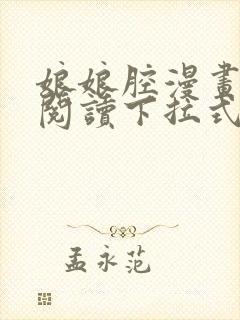 娘娘腔漫畫
閱讀下拉式
孟永范